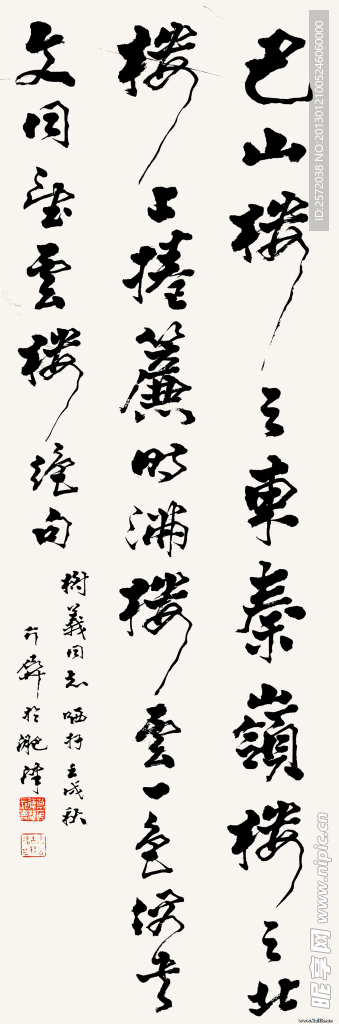 巴山楼之東秦嶺楼之北
楼上捲簾时满楼雲一色
文同望雲楼絶句
樹義同志哂 壬戌秋
介屏於淝
ID:2572038 NO:20130121005246060000
昵享网 www.nipic.cn